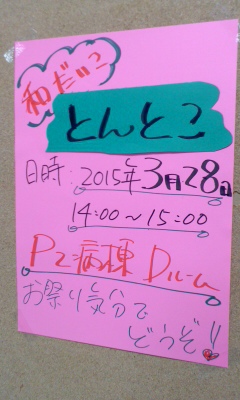 和だいこ
とんとこ
日時:2015年3月28日
14:00～15:00
P2病棟 Dルーム
お祭り気分で
どうぞ!!